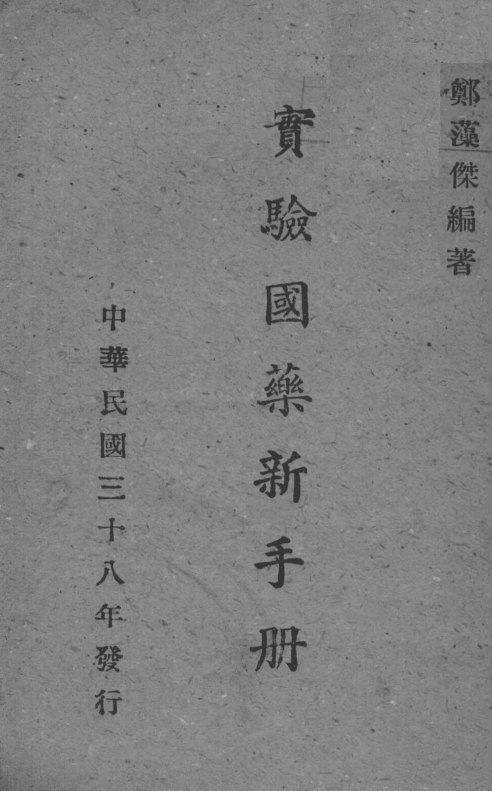 鄭藻傑編著
實驗國藥新手册
中華民國三十八年發行